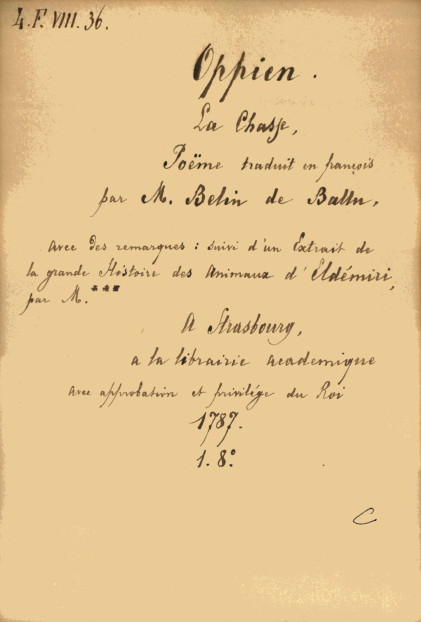 4. F. VIII. 36.
Oppien.
La Chasse,
Poëme traduit en françois
par M. Belin de Ballu,
avec des remarques : suivi d'un Extrait de
la grande Histoire des Animaux d'Eldémiri,
par M. ***
A Strasbourg,
a la librairie academique
avec approbation et privilége du Roi
1787.
1. 8º.
C